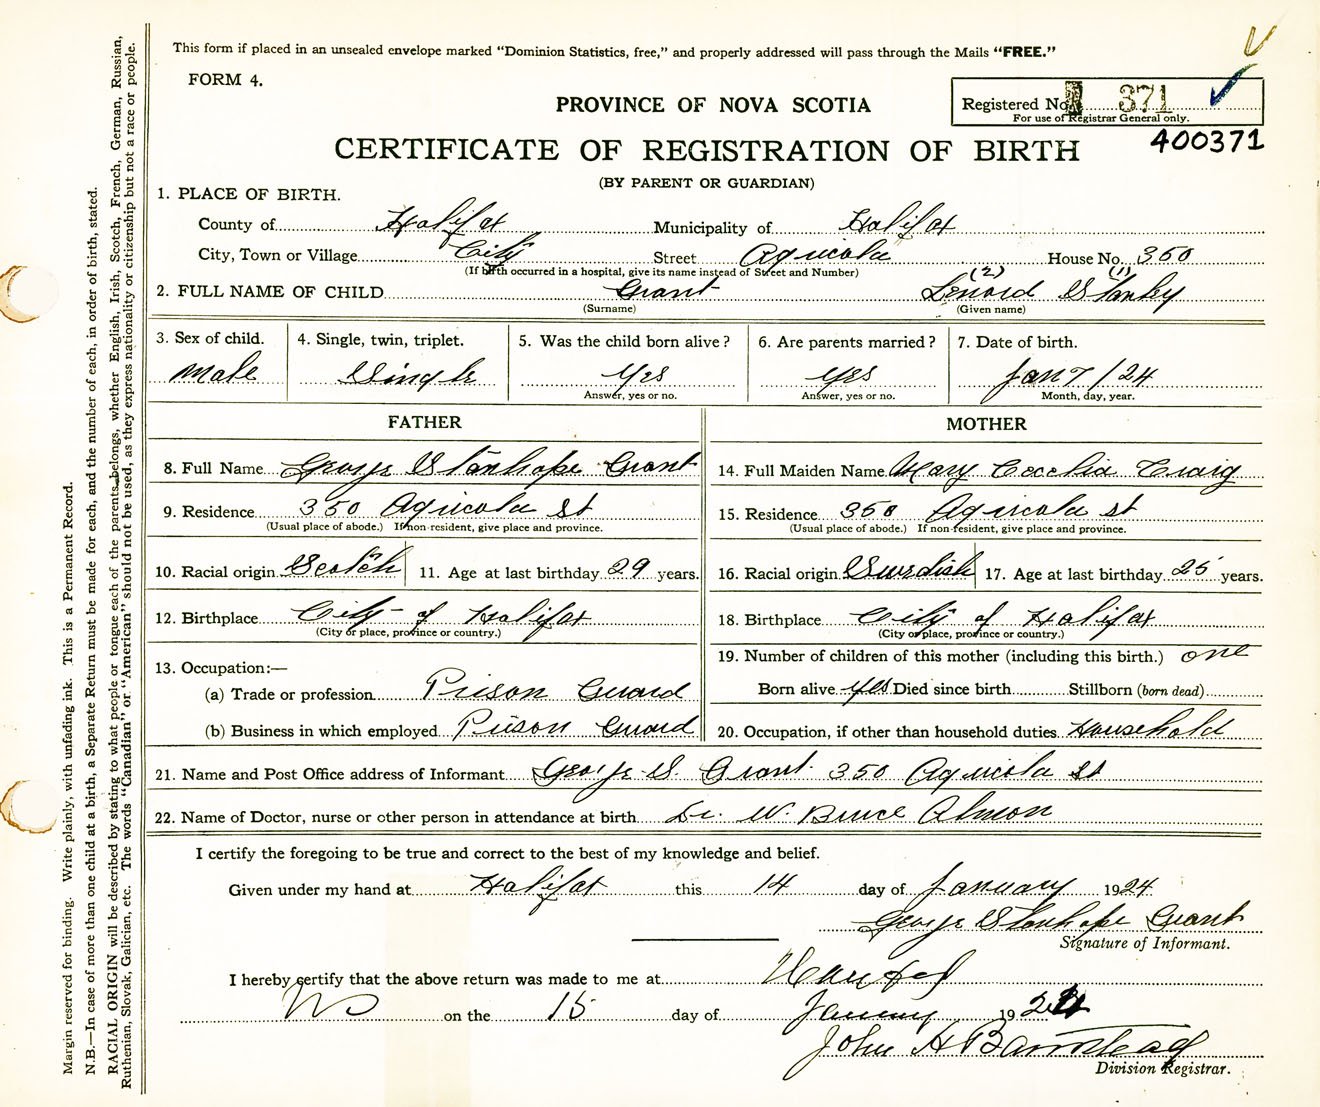 This form if placed in an unsealed envelope marked “Dominion Statistics, free,” and properly addressed will pass through the Mails “FREE.”
FORM 4.
PROVINCE OF NOVA SCOTIA
Registered No. 371
For use of Registrar General only.
400371
CERTIFICATE OF REGISTRATION OF BIRTH
(BY PARENT OR GUARDIAN)
1. PLACE OF BIRTH.
County of Halifax Municipality of Halifax
City, Town or Village City Street Agricola House No. 350
(If birth occurred in a hospital, give its name instead of Street and Number)
(2) (1)
2. FULL NAME OF CHILD Grant Lenord Stanley
(Surname) (Given name)
3. Sex of child. 4. Single, twin, triplet. 5. Was the child born alive? 6. Are parents married? 7. Date of birth.
Male Single Yes Yes Jan 7/24
Answer, yes or no. Answer, yes or no. Month, day, year.
FATHER MOTHER
8. Full Name George Stanhope Grant 14. Full Maiden Name Mary Cecelia Craig
9. Residence 350 Agricola St 15. Residence 350 Agricola St
(Usual place of abode.) If non-resident, give place and province. (Usual place of abode.) If non-resident, give place and province.
10. Racial origin Scotch 11. Age at last birthday 29 years. 16. Racial origin Swedish 17. Age at last birthday 25 years.
12. Birthplace City of Halifax 18. Birthplace City of Halifax
(City or place, province or country.) (City or place, province or country.)
13. Occupation:— 19. Number of children of this mother (including this birth.) one
(a) Trade or profession Prison Guard Born alive yes Died since birth Stillborn (born dead)
(b) Business in which employed Prison Guard 20. Occupation, if other than household duties Household
21. Name and Post Office address of Informant George S. Grant 350 Agricola St
22. Name of Doctor, nurse or other person in attendance at birth Dr. W. Bruce Almon
I certify the foregoing to be true and correct to the best of my knowledge and belief.
Given under my hand at Halifax this 14 day of January 1924
George Stanhope Grant
Signature of Informant.
I hereby certify that the above return was made to me at Halifax
NS on the 15 day of January 1924
John H Barnstead
Division Registrar.
Margin reserved for binding. Write plainly, with unfading ink. This is a Permanent Record.
N.B.—In case of more than one child at a birth, a Separate Return must be made for each, and the number of each, in order of birth, stated.
RACIAL ORIGIN will be described by stating to what people or tongue each of the parents belongs, whether English, Irish, Scotch, French, German, Russian,
Ruthenian, Slovak, Galician, etc. The words “Canadian” or “American” should not be used, as they express nationality or citizenship but not a race or people.